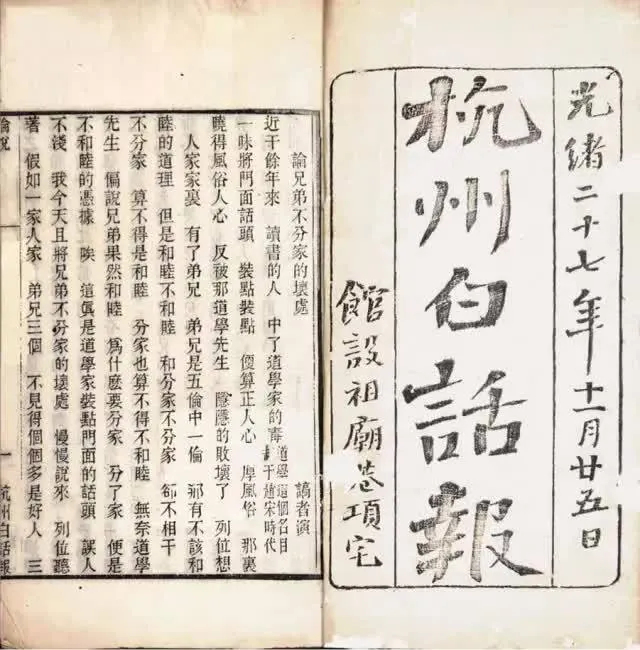 光緒二十七年十一月廿五日
杭州白話報
館設祖廟巷項宅
論兄弟不分家的壞處 謫者演
近千餘年來 讀書的人 中了道學家的毒 道學這個名目 于趙宋時代
一味將門面話頭 裝點裝點 便算正人心 厚風俗 那裏
曉得風俗人心 反被那道學先生 隱隱的敗壞了 列位想
人家家裏 有了弟兄 弟兄是五倫中一倫 那有不該和
睦的道理 但是和睦不和睦 和分家不分家 卻不相干
不分家 算不得是和睦 分家也算不得不和睦 無奈道學
先生 偏說兄弟果然和睦 為什麽要分家 分了家 便是
不和睦的憑據 唉 這眞是道學家裝點門面的話頭 誤人
不淺 我今天且將兄弟不分家的壞處 慢慢說來 列位聽
著 假如一家人家 弟兄三個 不見得個個多是好人 三
論說
一
杭州白話報